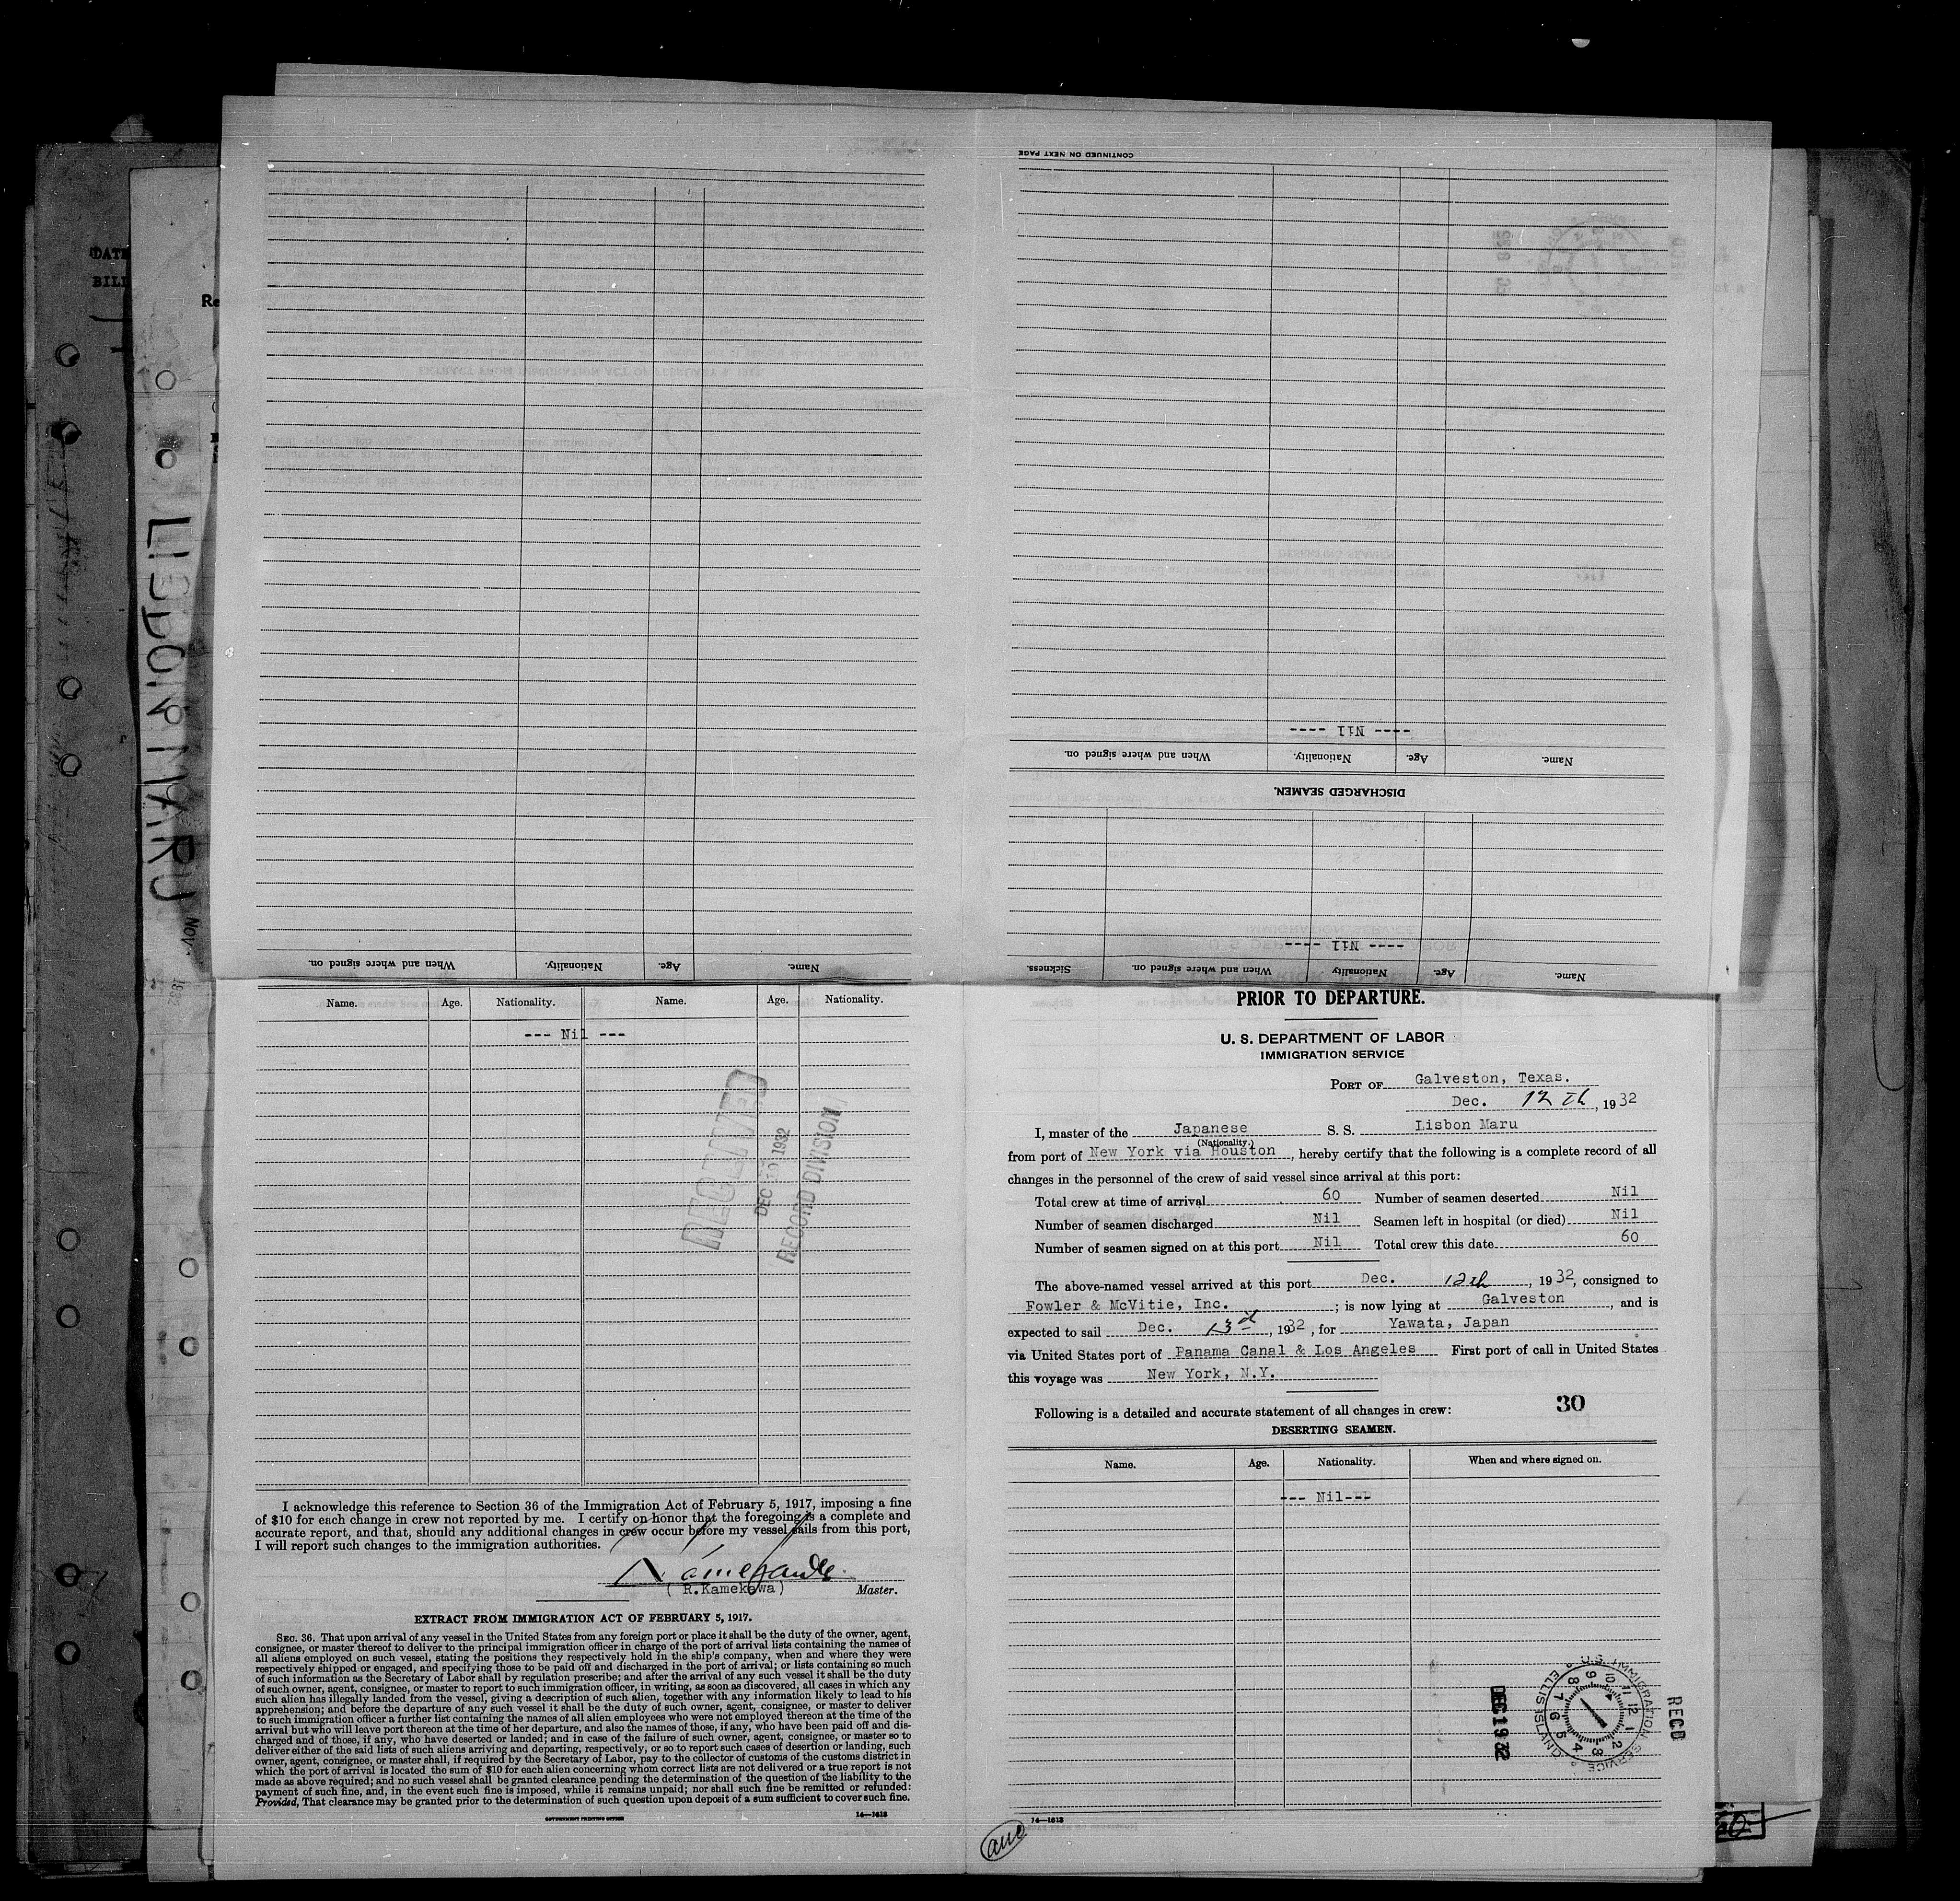 DATE
BILL
Re
LISBON MARU
NOV-
CONTINUED ON NEXT PAGE
---- Nil ----
Name. Age. Nationality. When and where signed on.
DISCHARGED SEAMEN.
---- Nil ----
Name. Age. Nationality When and where signed on. Sickness.
Name. Age. Nationality. When and where signed on.
Name. Age. Nationality. Name. Age. Nationality.
--- Nil ---
RECEIVED
DEC 1932
RECORD DIVISION
I acknowledge this reference to Section 36 of the Immigration Act of February 5, 1917, imposing a fine
of $10 for each change in crew not reported by me. I certify on honor that the foregoing is a complete and
accurate report, and that, should any additional changes in crew occur before my vessel sails from this port,
I will report such changes to the immigration authorities.
(R.Kamekawa) Master.
EXTRACT FROM IMMIGRATION ACT OF FEBRUARY 5, 1917.
SEC. 36. That upon arrival of any vessel in the United States from any foreign port or place it shall be the duty of the owner, agent,
consignee, or master thereof to deliver to the principal immigration officer in charge of the port of arrival lists containing the names of
all aliens employed on such vessel, stating the positions they respectively hold in the ship's company, when and where they were
respectively shipped or engaged, and specifying those to be paid off and discharged in the port of arrival; or lists containing so much
of such information as the Secretary of Labor shall by regulation prescribe; and after the arrival of any such vessel it shall be the duty
of such owner, agent, consignee, or master to report to such immigration officer, in writing, as soon as discovered, all cases in which any
such alien has illegally landed from the vessel, giving a description of such alien, together with any information likely to lead to his
apprehension; and before the departure of any such vessel it shall be the duty of such owner, agent, consignee, or master to deliver
to such immigration officer a further list containing the names of all alien employees who were not employed thereon at the time of the
arrival but who will leave port thereon at the time of her departure, and also the names of those, if any, who have been paid off and dis-
charged and of those, if any, who have deserted or landed; and in case of the failure of such owner, agent, consignee, or master so to
deliver either of the said lists of such aliens arriving and departing, respectively, or so to report such cases of desertion or landing, such
owner, agent, consignee, or master shall, if required by the Secretary of Labor, pay to the collector of customs of the customs district in
which the port of arrival is located the sum of $10 for each alien concerning whom correct lists are not delivered or a true report is not
made as above required; and no such vessel shall be granted clearance pending the determination of the question of the liability to the
payment of such fine, and, in the event such fine is imposed, while it remains unpaid; nor shall such fine be remitted or refunded:
Provided, That clearance may be granted prior to the determination of such question upon deposit of a sum sufficient to cover such fine.
GOVERNMENT PRINTING OFFICE 14—1618
PRIOR TO DEPARTURE.
U. S. DEPARTMENT OF LABOR
IMMIGRATION SERVICE
PORT OF Galveston, Texas.
Dec. 12th, 1932
I, master of the Japanese S. S. Lisbon Maru
(Nationality.)
from port of New York via Houston, hereby certify that the following is a complete record of all
changes in the personnel of the crew of said vessel since arrival at this port:
Total crew at time of arrival 60 Number of seamen deserted Nil
Number of seamen discharged Nil Seamen left in hospital (or died) Nil
Number of seamen signed on at this port Nil Total crew this date 60
The above-named vessel arrived at this port Dec. 12th, 1932, consigned to
Fowler & McVitie, Inc. ; is now lying at Galveston, and is
expected to sail Dec. 13d, 1932, for Yawata, Japan
via United States port of Panama Canal & Los Angeles First port of call in United States
this voyage was New York, N.Y.
Following is a detailed and accurate statement of all changes in crew: 30
DESERTING SEAMEN.
Name. Age. Nationality. When and where signed on.
--- Nil---
DEC 19 32
U.S. IMMIGRATION SERVICE ELLIS ISLAND
12 1 2 3 4 5 6 7 8 9 10 11
RECD
14—1618